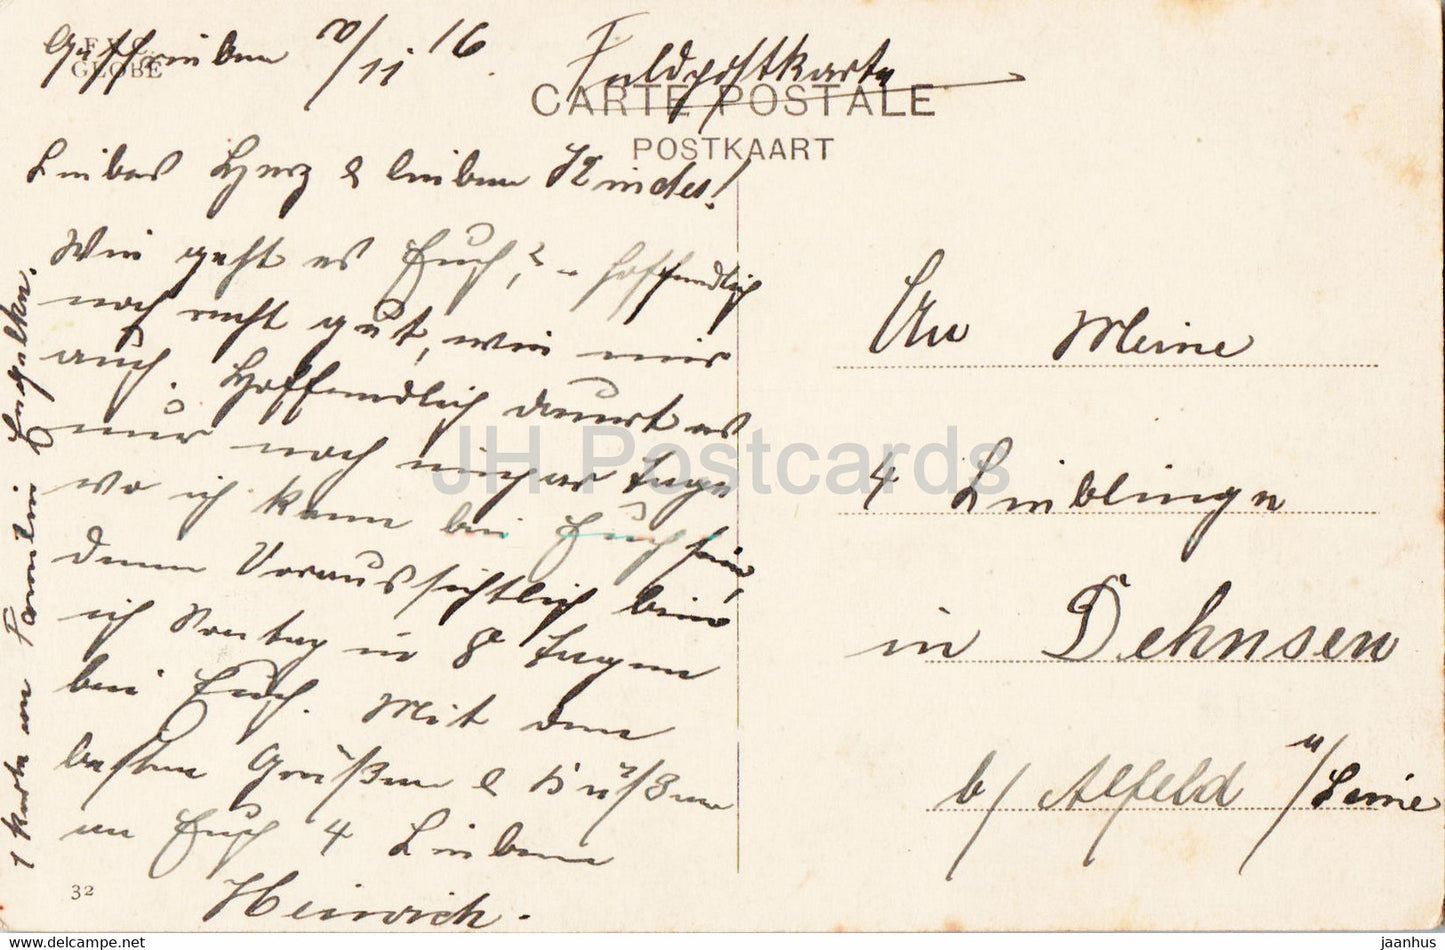 Geschrieben 10/11 16.
F.V.C.
GLOBE
Feldpostkarte
CARTE POSTALE
POSTKAART
Liebes Herz & lieben Kindes!
Wie geht es Euch, ? – hoffendlich
noch recht gut, wie mir
auch. Hoffendlich dauert es
nur noch einige Tage
wo ich kann bei Euch sein,
denn Voraussichtlich bin
ich Sontag in 8 Tagen
bei Euch. Mit den
besten Grüßen & Küßen
an Euch 4 Lieben
Heinrich.
1 Karte an Familie Engelke.
32
An Meine
4 Lieblinge
in Dehnsen
b/ Alfeld a/Leine
JH Postcards
jaanhus
www.delcampe.net